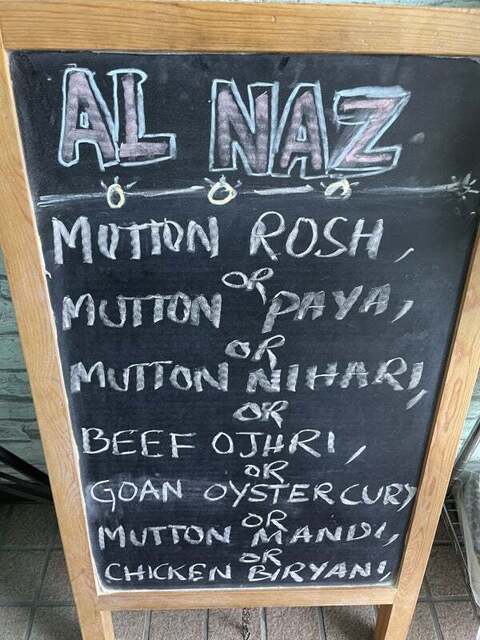 AL NAZ
MUTTON ROSH,
OR
MUTTON PAYA,
OR
MUTTON NIHARI,
OR
BEEF OJHRI,
OR
GOAN OYSTER CURY
OR
MUTTON MANDI,
OR
CHICKEN BIRYANI,